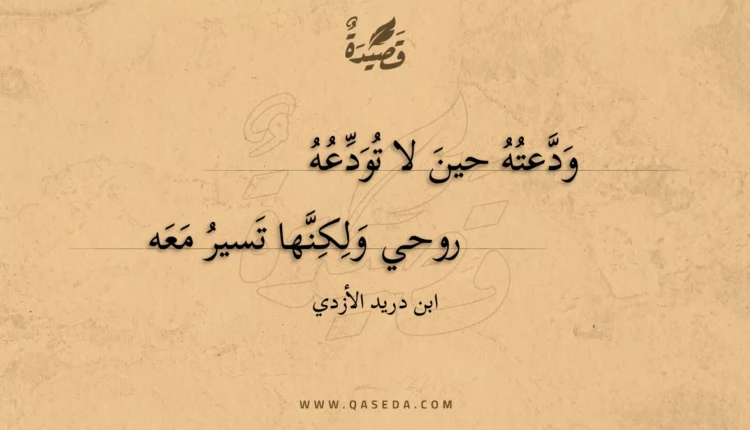 قَصِيدَةٌ
وَدَّعتُهُ حينَ لا تُوَدِّعُهُ
روحي وَلِكِنَّها تَسيرُ مَعَه
ابن دريد الأزدي
WWW.QASEDA.COM